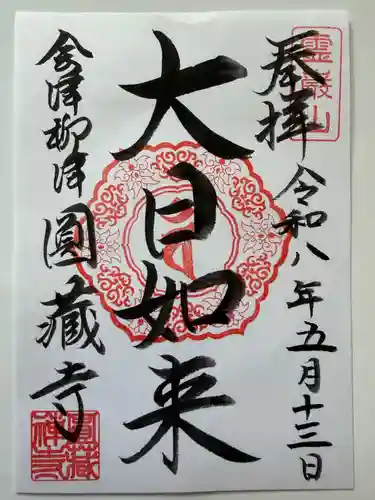 霊巌山
奉拝
令和八年五月十三日
大日如来
会津柳津
圓藏寺
圓藏禅寺